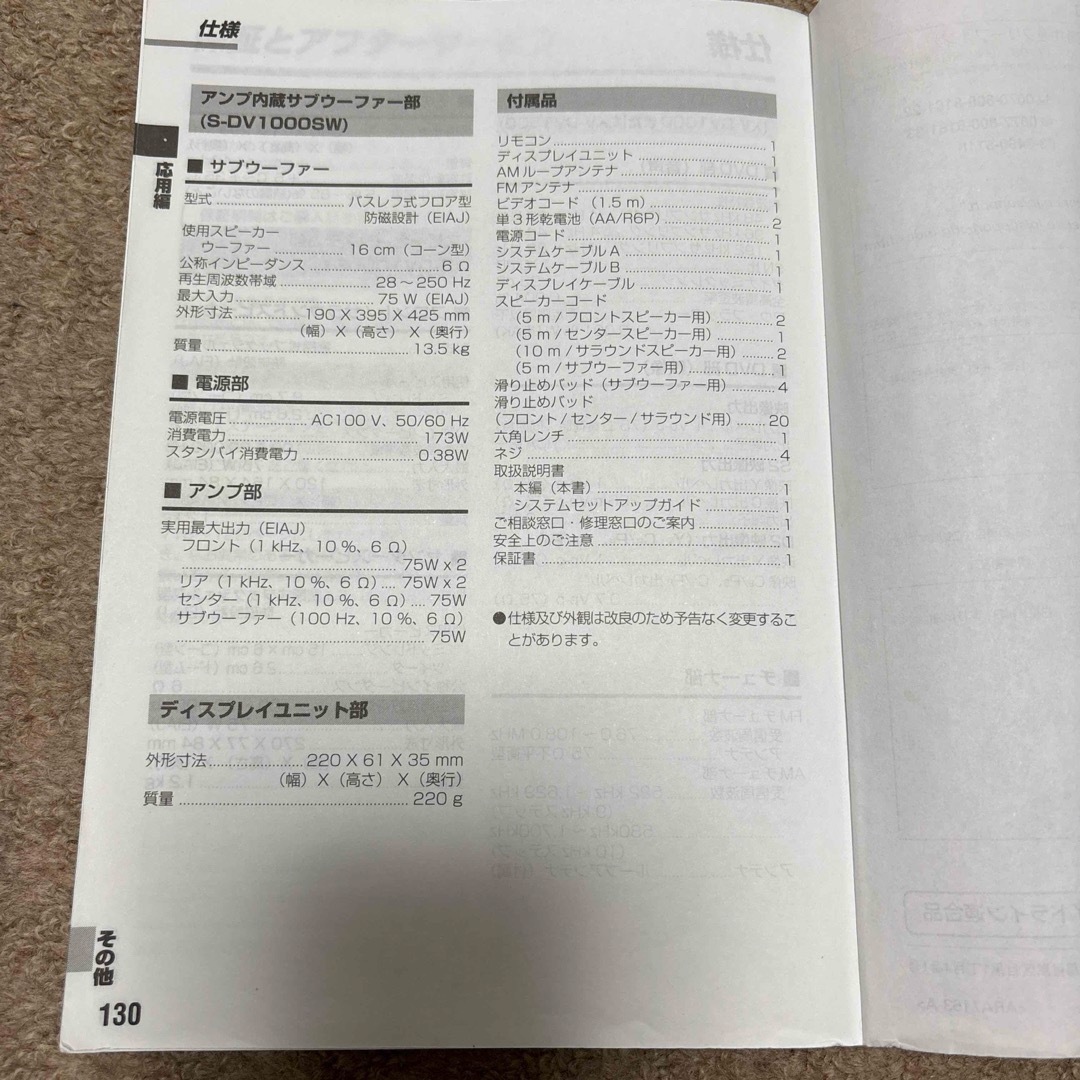 仕様
アンプ内蔵サブウーファー部
(S-DV1000SW)
応用編
■ サブウーファー
型式 ........ バスレフ式フロア型
防磁設計（EIAJ）
使用スピーカー
ウーファー ........ 16 cm（コーン型）
公称インピーダンス ........ 6 Ω
再生周波数帯域 ........ 28 ～ 250 Hz
最大入力 ........ 75 W（EIAJ）
外形寸法 ........ 190 X 395 X 425 mm
（幅）X（高さ）X（奥行）
質量 ........ 13.5 kg
■ 電源部
電源電圧 ........ AC100 V、50/60 Hz
消費電力 ........ 173W
スタンバイ消費電力 ........ 0.38W
■ アンプ部
実用最大出力（EIAJ）
フロント（1 kHz、10 %、6 Ω）
........ 75W x 2
リア（1 kHz、10 %、6 Ω）.... 75W x 2
センター（1 kHz、10 %、6 Ω）.... 75W
サブウーファー（100 Hz、10 %、6 Ω）
........ 75W
ディスプレイユニット部
外形寸法 ........ 220 X 61 X 35 mm
（幅）X（高さ） X（奥行）
質量 ........ 220 g
付属品
リモコン ........ 1
ディスプレイユニット ........ 1
AM ループアンテナ ........ 1
FM アンテナ ........ 1
ビデオコード（1.5 m）........ 1
単３形乾電池（AA/R6P）........ 2
電源コード ........ 1
システムケーブル A ........ 1
システムケーブル B ........ 1
ディスプレイケーブル ........ 1
スピーカーコード
（5 m / フロントスピーカー用）........ 2
（5 m / センタースピーカー用）........ 1
（10 m / サラウンドスピーカー用）........ 2
（5 m / サブウーファー用）........ 1
滑り止めパッド（サブウーファー用）........ 4
滑り止めパッド
（フロント / センター / サラウンド用）........ 20
六角レンチ ........ 1
ネジ ........ 4
取扱説明書
本編（本書）........ 1
システムセットアップガイド ........ 1
ご相談窓口・修理窓口のご案内 ........ 1
安全上のご注意 ........ 1
保証書 ........ 1
●仕様及び外観は改良のため予告なく変更するこ
とがあります。
その他
130